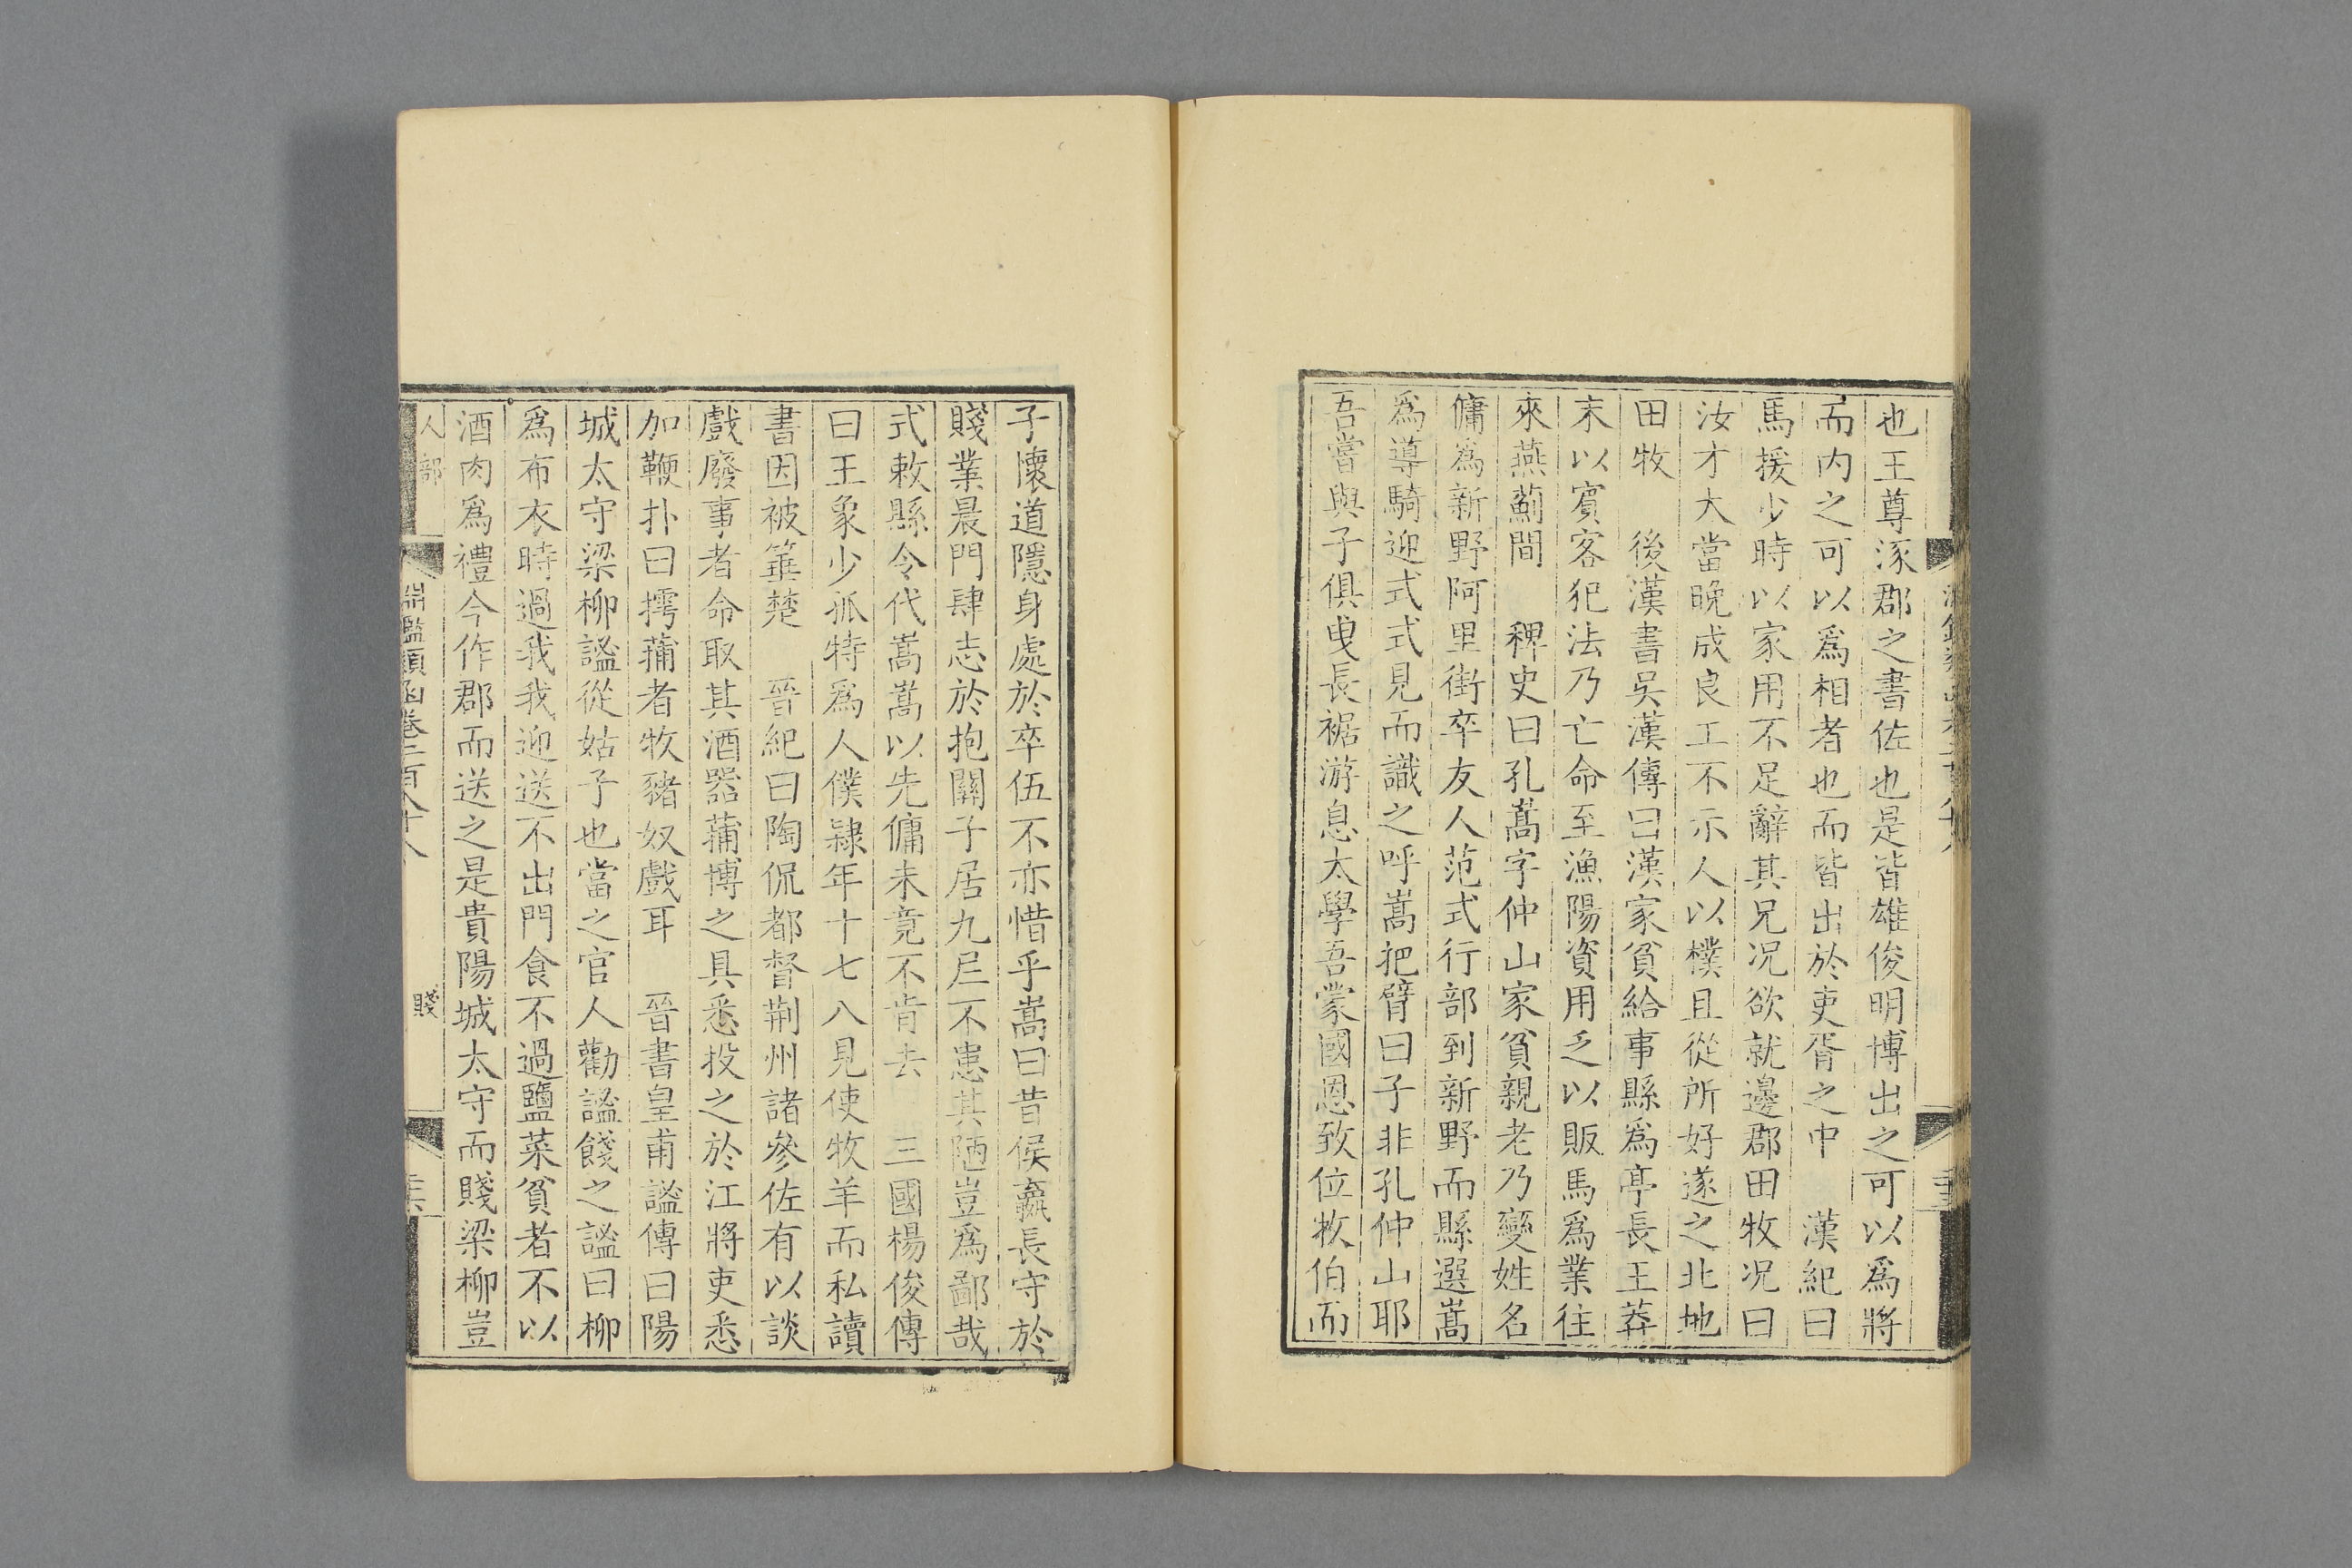 也王尊涿郡之書佐也是皆雄俊明博出之可以爲將
而内之可以爲相者也而皆出於吏胥之中　漢紀曰
馬援少時以家用不足辭其兄况欲就邊郡田牧况曰
汝才大當晚成良工不示人以樸且從所好遂之北地
田牧　後漢書吳漢傳曰漢家貧給事縣爲亭長王莽
末以賓客犯法乃亡命至漁陽資用乏以販馬爲業往
來燕薊間　稗史曰孔嵩字仲山家貧親老乃變姓名
傭爲新野阿里街卒友人范式行部到新野而縣選嵩
爲導騎迎式式見而識之呼嵩把臂曰子非孔仲山耶
吾嘗與子俱曳長裾游息太學吾蒙國恩致位牧伯而
子懷道隱身處於卒伍不亦惜乎嵩曰昔侯嬴長守於
賤業晨門肆志於抱關子居九夷不患其陋豈爲鄙哉
式敕縣令代嵩嵩以先傭未竟不肯去　三國楊俊傳
曰王象少孤特爲人僕隷年十七八見使牧羊而私讀
書因被箠楚　晉紀曰陶侃都督荆州諸參佐有以談
戲廢事者命取其酒器蒱博之具悉投之於江將吏悉
加鞭扑曰摴蒱者牧豬奴戲耳　晉書皇甫謐傳曰陽
城太守梁柳謐從姑子也當之官人勸謐餞之謐曰柳
爲布衣時過我我迎送不出門食不過鹽菜貧者不以
酒肉爲禮今作郡而送之是貴陽城太守而賤梁柳豈
人部
淵鑑類函卷二百八十八
賤